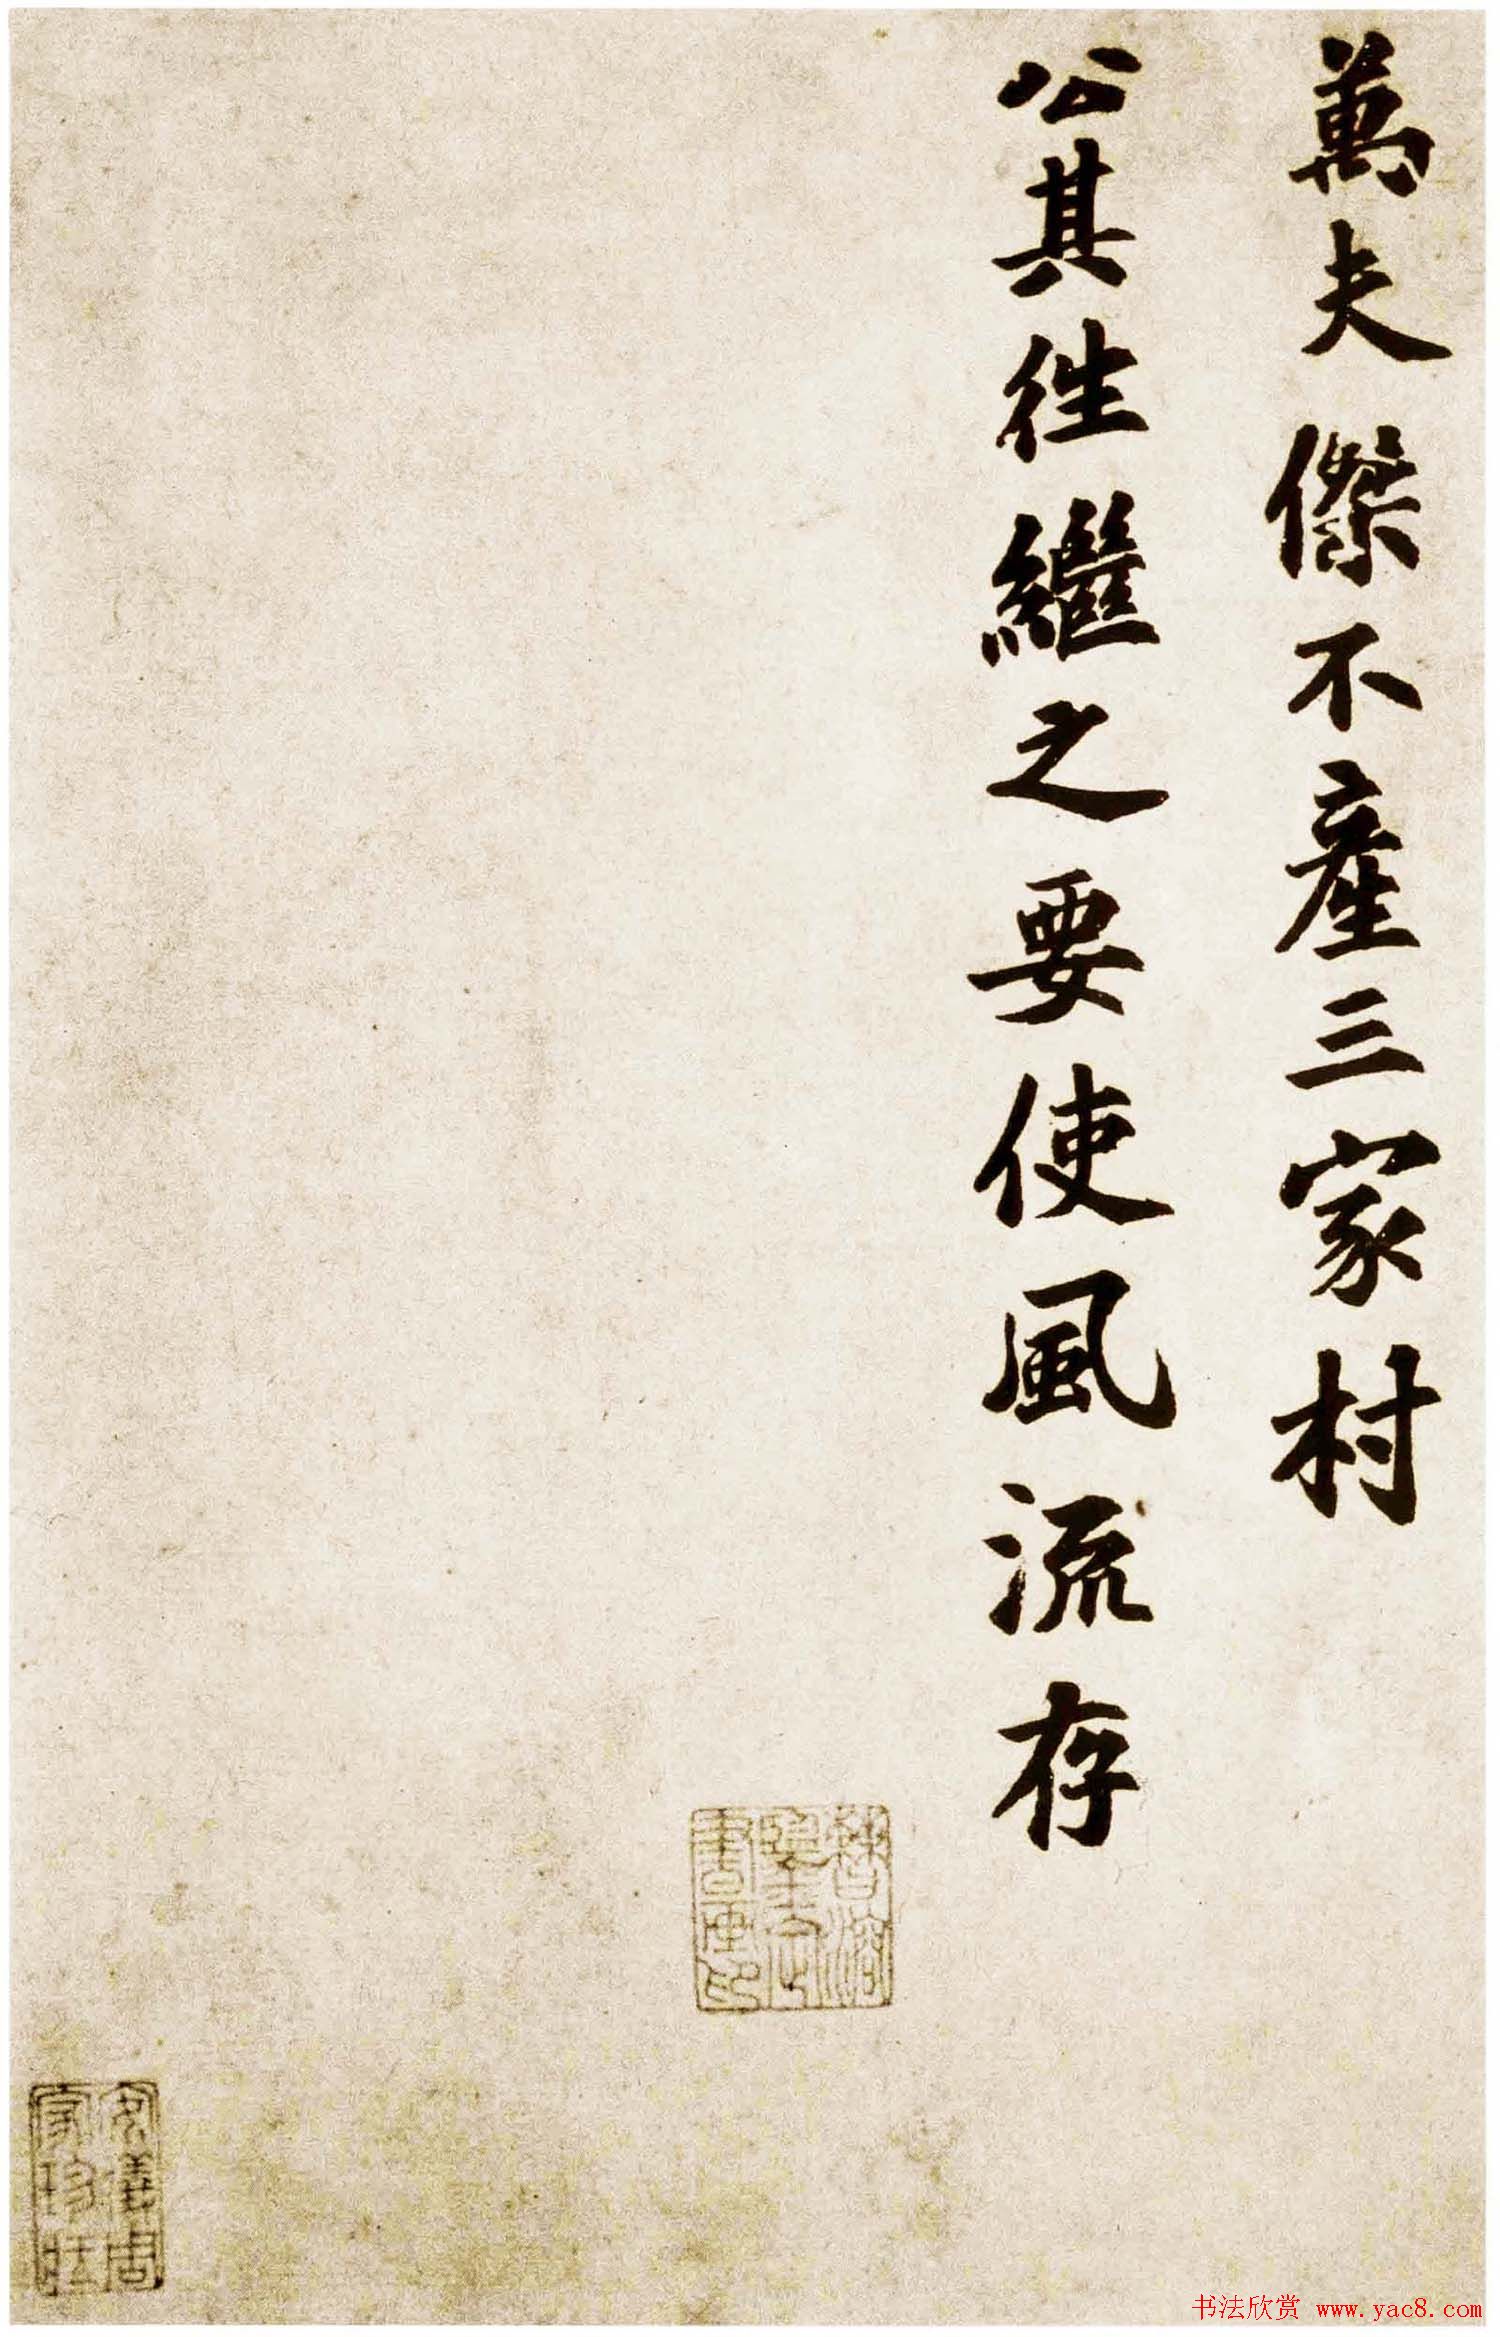 萬夫傑不產三家村
公其往繼之要使風流存
書畫印
家珍藏
书法欣赏 www.yac8.com